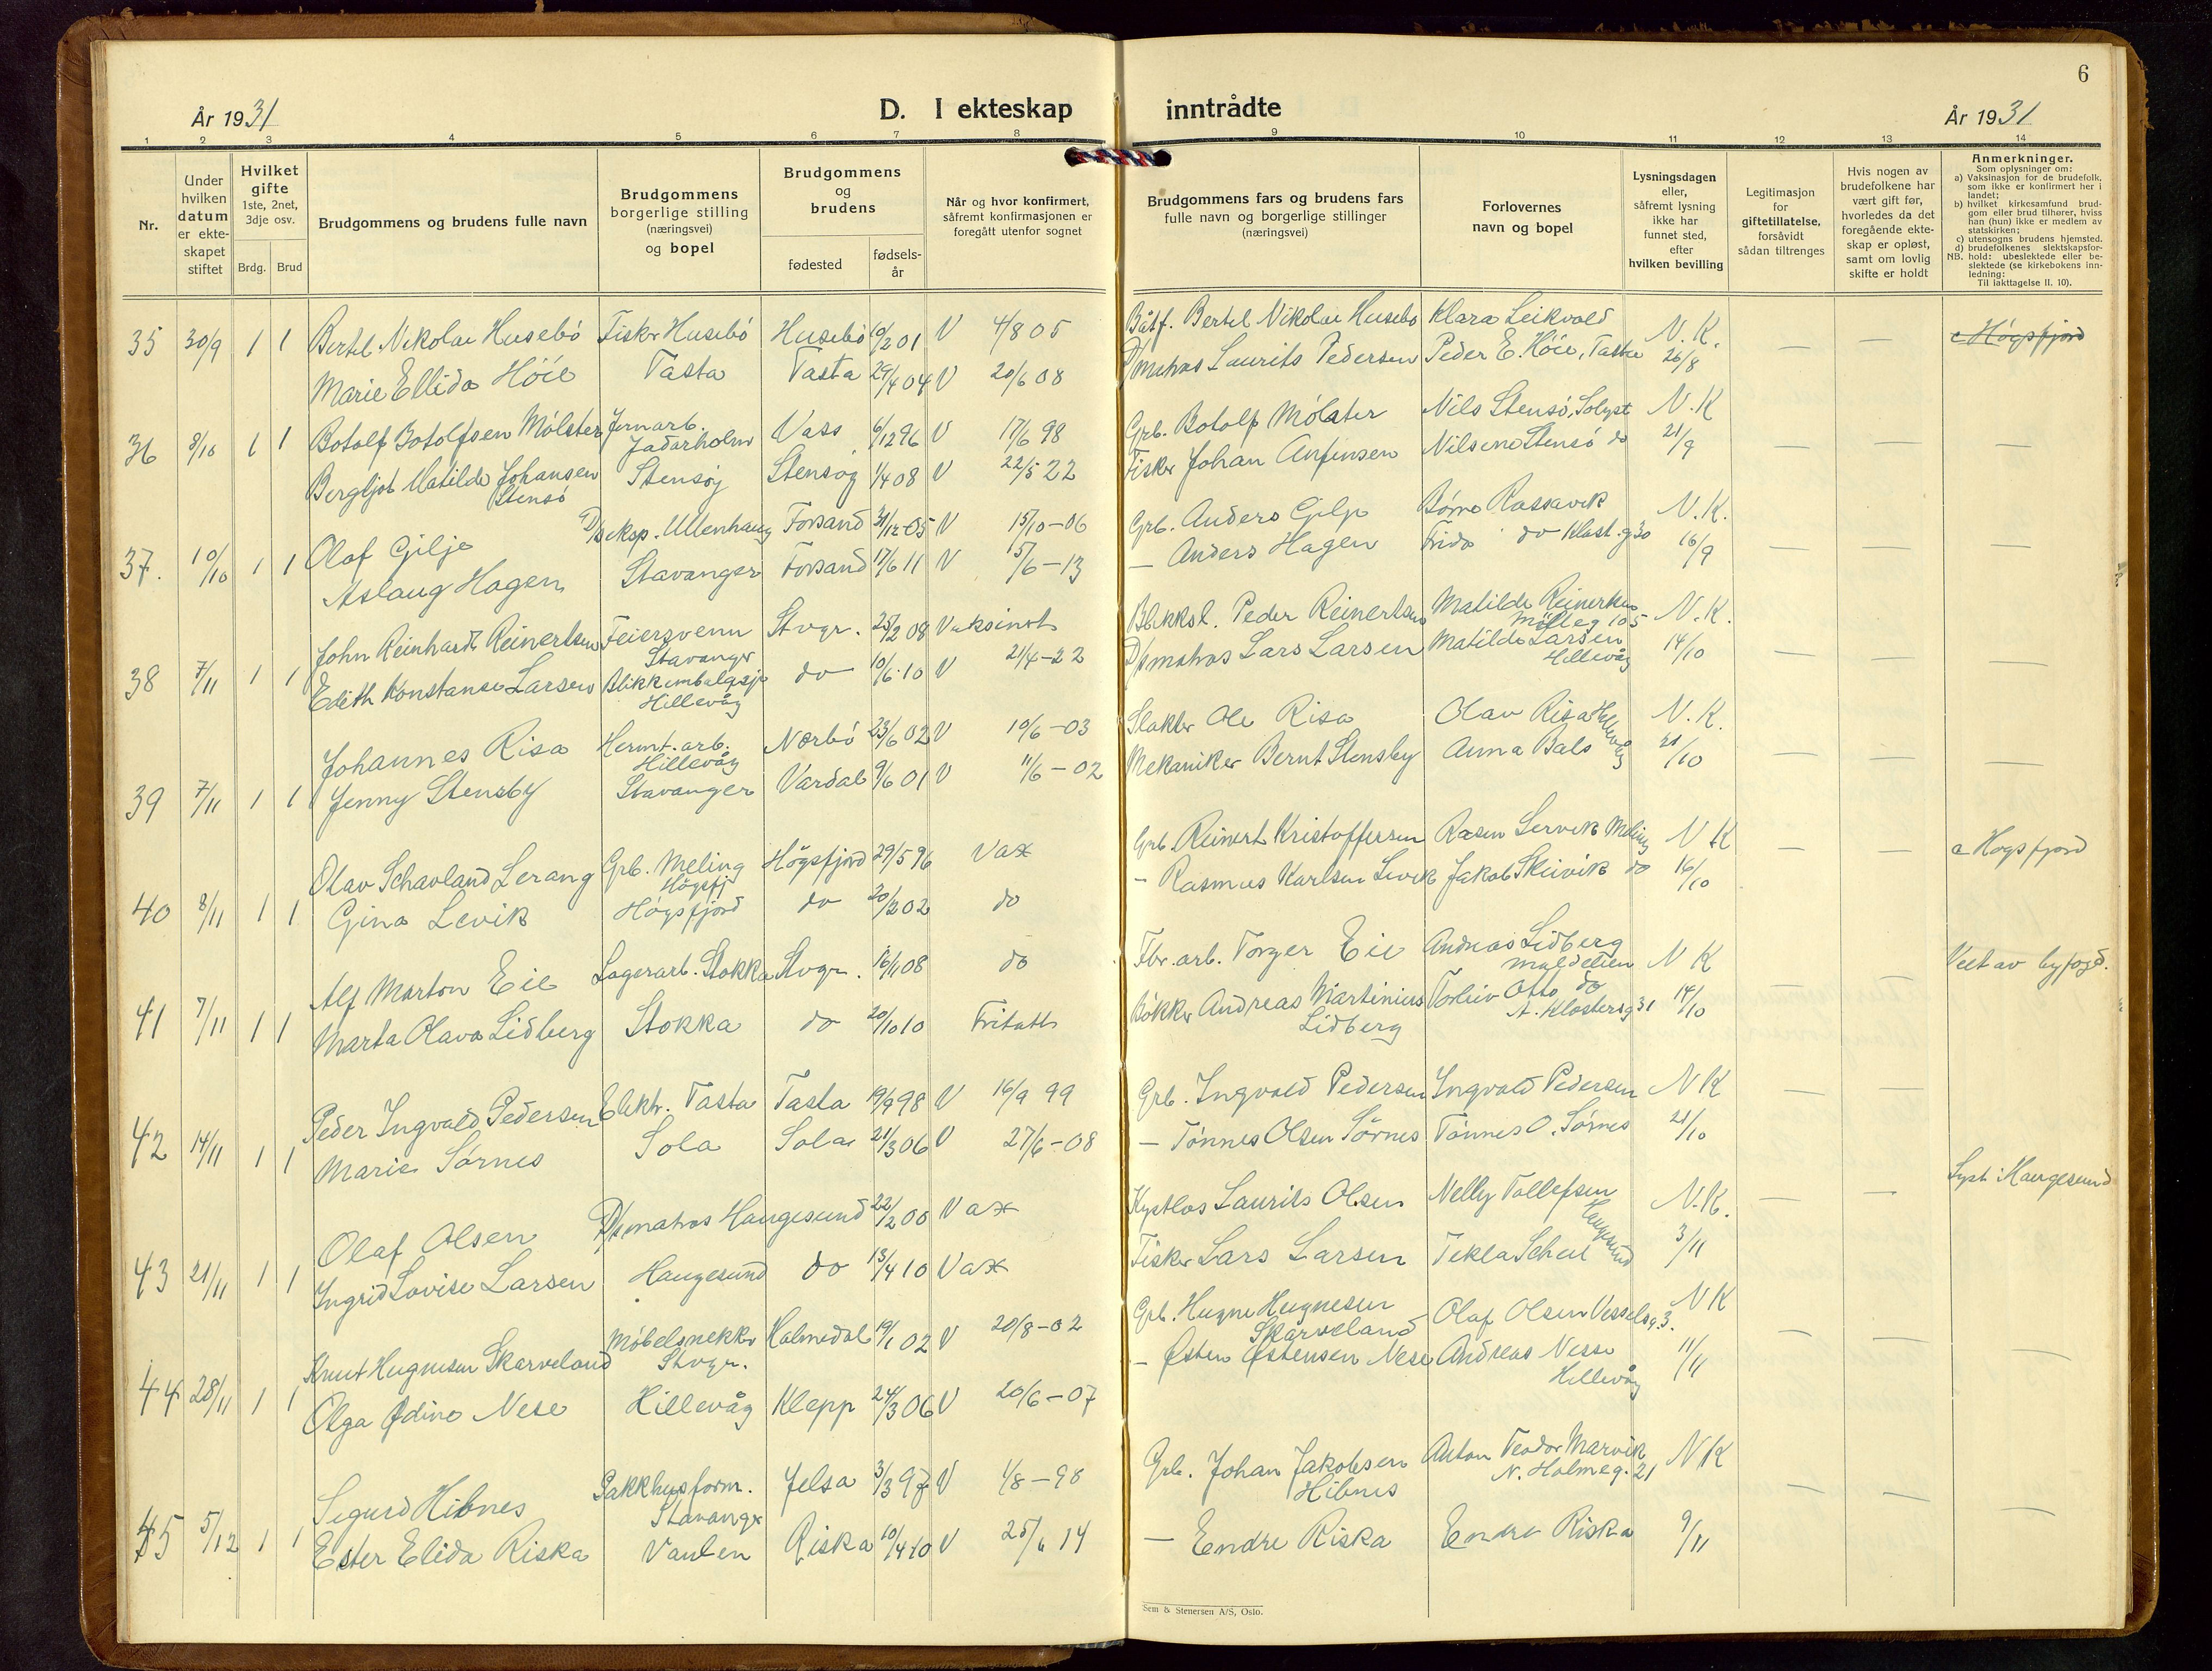 6
År 1931
D. I ekteskap inntrådte
År 1931
1 2 3 4 5 6 7 8 9 10 11 12 13 14
Nr.
Under hvilken datum er ekteskapet stiftet
Hvilket gifte 1ste, 2net, 3dje osv.
Brdg. Brud
Brudgommens og brudens fulle navn
Brudgommens borgerlige stilling (næringsvei) og bopel
Brudgommens og brudens
fødested
fødselsår
Når og hvor konfirmert, såfremt konfirmasjonen er foregått utenfor sognet
Brudgommens fars og brudens fars fulle navn og borgerlige stillinger (næringsvei)
Forlovernes navn og bopel
Lysningsdagen eller, såfremt lysning ikke har funnet sted, efter hvilken bevilling
Legitimasjon for giftetillatelse, forsåvidt sådan tiltrenges
Hvis nogen av brudefolkene har vært gift før, hvorledes da det foregående ekteskap er opløst, samt om lovlig skifte er holdt
Anmerkninger.
Som oplysninger om:
a) Vaksinasjon for de brudefolk, som ikke er konfirmert her i landet;
b) hvilket kirkesamfund brudgom eller brud tilhører, hviss han (hun) ikke er medlem av statskirken;
c) utensogns brudens hjemsted.
d) brudefolkenes slektskapsforhold: ubeslektede eller beslektede (se kirkebokens innledning:
NB. Til iakttagelse II. 10).
35 30/9 1 1 Bertel Nikolai Husebö Fisker Husebö Husebö 10/2 01 V 4/8 05 Båtf. Bertel Nikolai Husebö Klara Leikvold N.K. — — c Högsfjord
Marie Ellida Höie Tasta Tasta 29/4 04 V 20/6 08 D/matros Laurits Pedersen Peder E. Höie, Tasta 26/8
36 8/10 1 1 Botolf Botolfsen Mölster Jernarb. Jadarholm Vass 6/12 96 V 17/6 98 Grb. Botolf Mölster Nils Stensö, Solyst N.K — — —
Bergljot Matilde Johansen Stensö Stensöy Stensöy 1/4 08 V 22/5 22 Fisker Johan Anfinsen Nilsine Stensö do 21/9
37. 10/10 1 1 Olaf Gilje D/sksp. Ullenhaug Forsand 31/12-05 V 15/10-06 Grb. Anders Gilje Börre Rossavik N.K. — — —
Aslaug Hagen Stavanger Forsand 17/6 11 V 15/6-13 — Anders Hagen Frida do Klost.g 30 16/9
38 7/11 1 1 John Reinhardt Reinertsen Feiersvenn Stavanger Stvgr. 25/2 08 Vaksinert Blikksl. Peder Reinertsen Matilde Reinertsen Mölleg 105 N.K. — — —
Edith Konstanse Larsen Blikkembalgsje Hillevåg do 10/6 10 V 21/4-22 D/smatros Lars Larsen Matilde Larsen Hillevåg 14/10
39 7/11 1 1 Johannes Risa Hermt. arb. Hillevåg Nærbö 23/6 02 V 10/6-03 Slakter Ole Risa Olav Risa Hillevåg N.K. — — —
Jenny Stensby Stavanger Vardal 9/6 01 V 11/6-02 Mekaniker Bernt Stensby Anna Bals 21/10
40 8/11 1 1 Olav Schavland Lerang Grb. Meling Högsfj Högsfjord 29/5 96 Vax Grb. Reinert Kristoffersen Rasm Lervik Meling N K — — c Hogsfjord
Gina Levik Högsfjord do 20/2 02 do — Rasmus Karlsen Levik Jakob Skeivik do 16/10
41 7/11 1 1 Alf Morton Eie Lagerarb. Stokka Stvgr. 16/11 08 do Fbr. arb. Torger Eie Andreas Lidberg N K — — Viet av byfogd.
Marta Olava Lidberg Stokka do 20/10 10 Fritatt Bökker Andreas Martinius Lidberg Torleiv Otto do A. Klostersg 31 14/10
42 14/11 1 1 Peder Ingvald Pedersen Elektr. Tasta Tasta 19/9 98 V 16/9 99 Grb. Ingvald Pedersen Ingvald Pedersen N K — —
Marie Sörnes Sola Sola 21/3 06 V 27/6-08 — Tönnes Olsen Sörnes Tönnes O. Sörnes 21/10
43 21/11 1 1 Olaf Olsen D/smatros Haugesund 22/2 00 Vax Kystlos Laurits Olsen Nelly Tollefsen Haugesund N.K. — — Lyst i Haugesund
Ingrid Lovise Larsen Haugesund do 13/4 10 Vax Fisker Lars Larsen Tekla Scheil 3/11
44 28/11 1 1 Knut Hugnesen Skarveland Möbelsnekker Stvgr. Halmedal 19/1 02 V 20/8-02 Grb. Hugne Hugnesen Skarveland Olaf Olsen Vesselsg. 3. N K — — —
Olga Ödine Nese Hillevåg Klepp 24/3 06 V 20/6-07 — Østen Østensen Nese Andreas Nesse Hillevåg 11/11
45 5/12 1 1 Sigurd Hibnes Pakkhusform. Stavanger Jelsa 3/3 97 V 1/8-98 Grb. Johan Jakobsen Hibnes Anton Teodor Marvik N. Holmeg. 21 N K — — —
Ester Elida Riska Vaulen Riska 10/4 10 V 25/6 14 — Endre Riska Endre Riska 9/11
Sem & Stenersen A/S, Oslo.